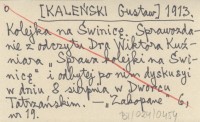 [KALEŃSKI Gustaw] 1913.
Kolejka na Świnicę. Sprawozda-
nie z odczytu Dra Wiktora Kuź-
niara "Sprawa kolejki na Świ-
nicę" i odbytej po nim dyskusyi
w dniu 8 sierpnia w Dworcu
Tatrzańskim. — "Zakopane",
nr 19.